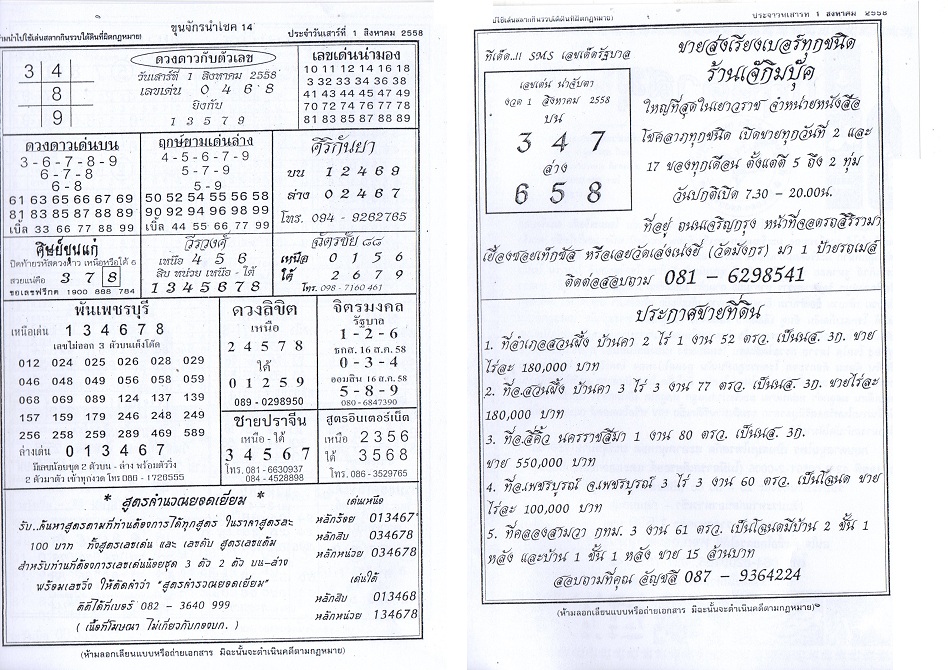 ขุนจักรนำโชค 14
ห้ามนำไปใช้เล่นสลากกินรวบใต้ดินที่ผิดกฎหมาย)
ประจำวันเสาร์ที่ 1 สิงหาคม 2558
3 4
8
9
ดวงดาวกับตัวเลข
วันเสาร์ที่ 1 สิงหาคม 2558
เลขเด่น 0 4 6 8
ยิงกับ
1 3 5 7 9
เลขเด่นน่ามอง
10 11 12 14 16 18
3 32 33 34 36 38
41 43 44 45 47 49
70 72 74 76 77 78
81 83 85 87 88 89
ดวงดาวเด่นบน
3-6-7-8-9
6-7-8
6-8
61 63 65 66 67 69
81 83 85 87 88 89
เบิ้ล 33 66 77 88 99
ฤกษ์ยามเด่นล่าง
4-5-6-7-9
5-7-9
5-9
50 52 54 55 56 58
90 92 94 96 98 99
เบิ้ล 44 55 66 77 99
ศิริกันยา
บน 1 2 4 6 9
ล่าง 0 2 4 6 7
โทร. 094 - 9262765
ศิษย์ขุนแก่
ปิดท้ายรหัสดวงดาว เหนือหรือใต้ 6
สวยแน่คือ 3 7 8
ขอเลขฟรีกด 1900 888 784
วีรวงศ์
เหนือ 4 5 6
สิบ หน่วย เหนือ - ใต้
1 3 4 5 6 7 8
ฉัตรชัย ๘๘
เหนือ 0 1 5 6
ใต้ 2 6 7 9
โทร. 098 - 7160 461
พันเพชรบุรี
เหนือเด่น 1 3 4 6 7 8
เลขไม่ออก 3 ตัวบนเต็งโต๊ด
012 024 025 026 028 029
046 048 049 056 058 059
068 069 089 124 137 139
157 159 179 246 248 249
256 258 259 289 469 589
ล่างเด่น 0 1 3 4 6 7
มีเลขน้อยชุด 2 ตัวบน - ล่าง พร้อมตัววิ่ง
2 ตัวมาตัว เข้าทุกงวด โทร 086 - 1726555
ดวงลิขิต
เหนือ
2 4 5 7 8
ใต้
0 1 2 5 9
089 - 0298950
จิตรมงคล
รัฐบาล
1 - 2 - 6
ธกส. 16 ส.ค. 58
0 - 3 - 4
ออมสิน 16 ส.ค. 58
5 - 8 - 9
080 - 6847390
ชายปราจีน
เหนือ - ใต้
3 4 5 6 7
โทร. 081 - 6630937
084 - 4528898
สูตรอินเตอร์เน็ต
เหนือ 2 3 5 6
ใต้ 3 5 6 8
โทร. 086 - 3529765
* สูตรคำนวณยอดเยี่ยม *
รับ..ค้นหาสูตรตามที่ท่านต้องการได้ทุกสูตร ในราคาสูตรละ
100 บาท ทั้งสูตรเลขเด่น และ เลขดับ สูตรเลขแต้ม
สำหรับท่านที่ต้องการเลขเด่นน้อยชุด 3 ตัว 2 ตัว บน-ล่าง
พร้อมเลขวิ่ง ให้ตัดคำว่า "สูตรคำรวณยอดเยี่ยม"
ติดต่อได้ที่เบอร์ 082 - 3640 999
( เนื้อที่โฆษณา ไม่เกี่ยวกับกองบก. )
เด่นเหนือ
หลักร้อย 013467
หลักสิบ 034678
หลักหน่วย 034678
เด่นใต้
หลักสิบ 013468
หลักหน่วย 134678
(ห้ามลอกเลียนแบบหรือถ่ายเอกสาร มิฉะนั้นจะดำเนินคดีตามกฎหมาย)
ปใช้เล่นสลากกินรวบใต้ดินที่ผิดกฎหมาย)
ประจำวันเสาร์ที่ 1 สิงหาคม 2558
ทีเด็ด..!! SMS เลขเด็ดรัฐบาล
เลขเด่น น่าจับตา
งวด 1 สิงหาคม 2558
บน
3 4 7
ล่าง
6 5 8
ขายส่งเรียงเบอร์ทุกชนิด
ร้านเจ๊กิมบุ๊ค
ใหญ่ที่สุดในเยาวราช จำหน่ายหนังสือ
โชคลาภทุกชนิด เปิดขายทุกวันที่ 2 และ
17 ของทุกเดือน ตั้งแต่ตี 5 ถึง 2 ทุ่ม
วันปกติเปิด 7.30 - 20.00น.
ที่อยู่ ถนนเจริญกรุง หน้าที่จอดรถสิริรามา
เยื้องซอยเท็กซัส หรือเลยวัดเล่งเน่ยยี่ (วัดมังกร) มา 1 ป้ายรถเมล์
ติดต่อสอบถาม 081 - 6298541
ประกาศขายที่ดิน
1. ที่อำเภอสวนผึ้ง บ้านคา 2 ไร่ 1 งาน 52 ตรว. เป็นนส. 3ก. ขาย
ไร่ละ 180,000 บาท
2. ที่อ.สวนผึ้ง บ้านคา 3 ไร่ 3 งาน 77 ตรว. เป็นนส. 3ก. ขายไร่ละ
180,000 บาท
3. ที่อ.สีคิ้ว นครราชสีมา 1 งาน 80 ตรว. เป็นนส. 3ก.
ขาย 550,000 บาท
4. ที่อ.เพชรบูรณ์ จ.เพชรบูรณ์ 3 ไร่ 3 งาน 60 ตรว. เป็นโฉนด ขาย
ไร่ละ 100,000 บาท
5. ที่คลองสามวา กทม. 3 งาน 61 ตรว. เป็นโฉนดมีบ้าน 2 ชั้น 1
หลัง และบ้าน 1 ชั้น 1 หลัง ขาย 15 ล้านบาท
สอบถามที่คุณ อัญชลี 087 - 9364224
(ห้ามลอกเลียนแบบหรือถ่ายเอกสาร มิฉะนั้นจะดำเนินคดีตามกฎหมาย)